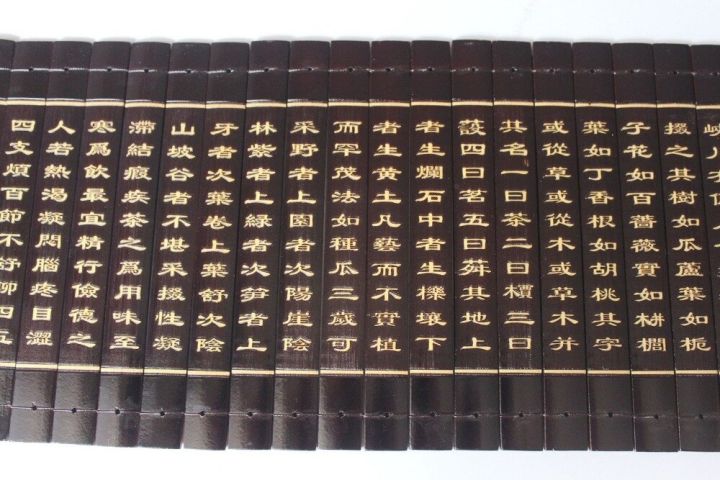 掇之其樹如瓜蘆葉如梔
子花如百薔薇實如栟櫚
葉如丁香根如胡桃其字
或從草或從木或草木并
其名一曰茶二曰檟三曰
蔎四曰茗五曰荈其地上
者生爛石中者生櫟壤下
者生黄土凡藝而不實植
而罕茂法如種瓜三歲可
采野者上園者次陽崖陰
林紫者上綠者次笋者上
牙者次葉卷上葉舒次陰
山坡谷者不堪采掇性凝
滯結瘕疾茶之爲用味至
寒爲飲最宜精行儉德之
人若熱渴凝悶腦疼目澀
四支煩百節不舒聊四五